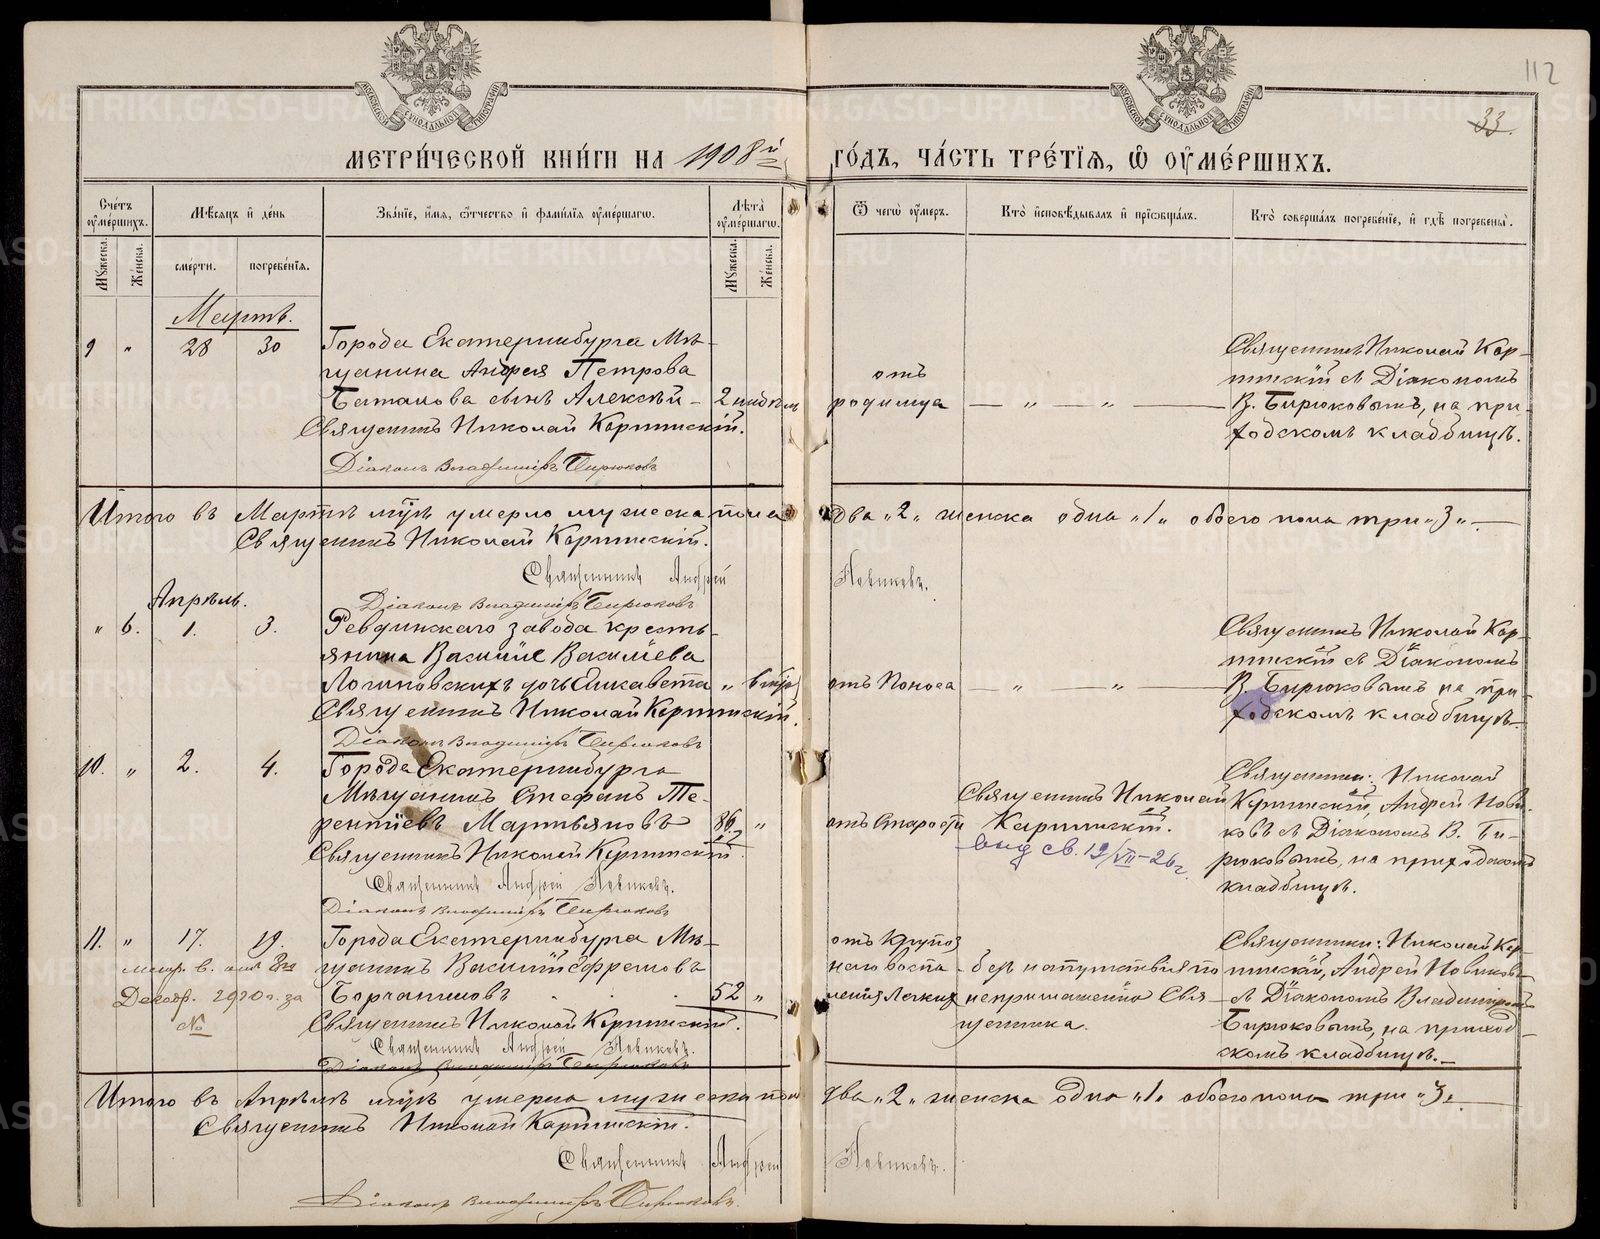 112
33.
МЕТРИ́ЧЕСКОЙ КНИ́ГИ НА 1908й ГО́ДЪ, ЧА́СТЬ ТРЕ́ТІѦ, Ѡ҆ ОУ҆МЕ́РШИХЪ.
Сче́тъ оу҆ме́ршихъ.
Мꙋ́жеска.
Же́нска.
Мѣ́сѧцъ и҆ де́нь
сме́рти.
погребе́нїѧ.
Зва́нїе, и҆́мѧ, ѻ҆́тчество и҆ фами́лїѧ оу҆ме́ршагѡ.
Лѣ́та оу҆ме́ршагѡ.
Мꙋ́жеска.
Же́нска.
Ѿ чегѡ̀ оу҆́меръ.
Кто̀ и҆сповѣ́дывалъ и҆ прїѡбща́лъ.
Кто̀ соверша́лъ погребе́нїе, и҆ гдѣ̀ погребены̀.
Мартъ.
9 " 28 30
Города Екатеринбурга Мѣ-
щанина Андрея Петрова
Баталова сынъ Алексѣй - 2 недѣли
Священникъ Николай Карпинскій.
Діаконъ Владиміръ Бирюковъ
отъ
родимца — " — " —
Священникъ Николай Кар-
пинскій съ Діакономъ
В. Бирюковымъ, на при-
ходскомъ кладбищѣ.
Итого въ Мартѣ м-цѣ умерло мужеска пола два „2„ женска одна „1„ обоего пола три „3„. —
Священникъ Николай Карпинскій.
Священникъ Андрей Новиковъ.
Діаконъ Владиміръ Бирюковъ
Апрѣль.
" 6. 1. 3.
Ревдинскаго завода кресть-
янина Василія Васильева
Логиновскихъ дочь Елизавета "
Священникъ Николай Карпинскій.
Діаконъ Владиміръ Бирюковъ
отъ Поноса — " — " —
Священникъ Николай Кар-
пинскій съ Діакономъ
В. Бирюковымъ на при-
ходскомъ кладбищѣ —
10. " 2. 4.
Города Екатеринбурга
Мѣщанинъ Стефанъ Те-
рентіевъ Мартьяновъ 86 "
Священникъ Николай Карпинскій
Священникъ Андрей Новиковъ.
Діаконъ Владиміръ Бирюковъ
отъ Старости
Священникъ Николай
Карпинскій.
выд св. 19/VII-26 г.
Священники: Николай
Карпинскій, Андрей Нови-
ковъ съ Діакономъ В. Би-
рюковымъ, на приходскомъ
кладбищѣ.
11. " 17. 19.
Города Екатеринбурга Мѣ-
щанинъ Василій Ефремовъ
Борчаниновъ . . . 52 "
Священникъ Николай Карпинскій.
Священникъ Андрей Новиковъ.
Діаконъ Владиміръ Бирюковъ
Декабр. 1920 г. за
№
отъ Крупоз
наго воспа
ленія Легких
- безъ напутствія по
неприглашенію Свя-
щенника.
Священники: Николай Кар-
пинскій, Андрей Новиковъ
съ Діакономъ Владиміромъ
Бирюковымъ, на приход-
скомъ кладбищѣ. —
Итого въ Апрѣлѣ м-цѣ умерло мужеска пола два „2„ женска одна „1„ обоего пола три „3„. —
Священникъ Николай Карпинскій.
Священникъ Андрей Новиковъ.
Діаконъ Владиміръ Бирюковъ.
METRIKI.GASO-URAL.RU